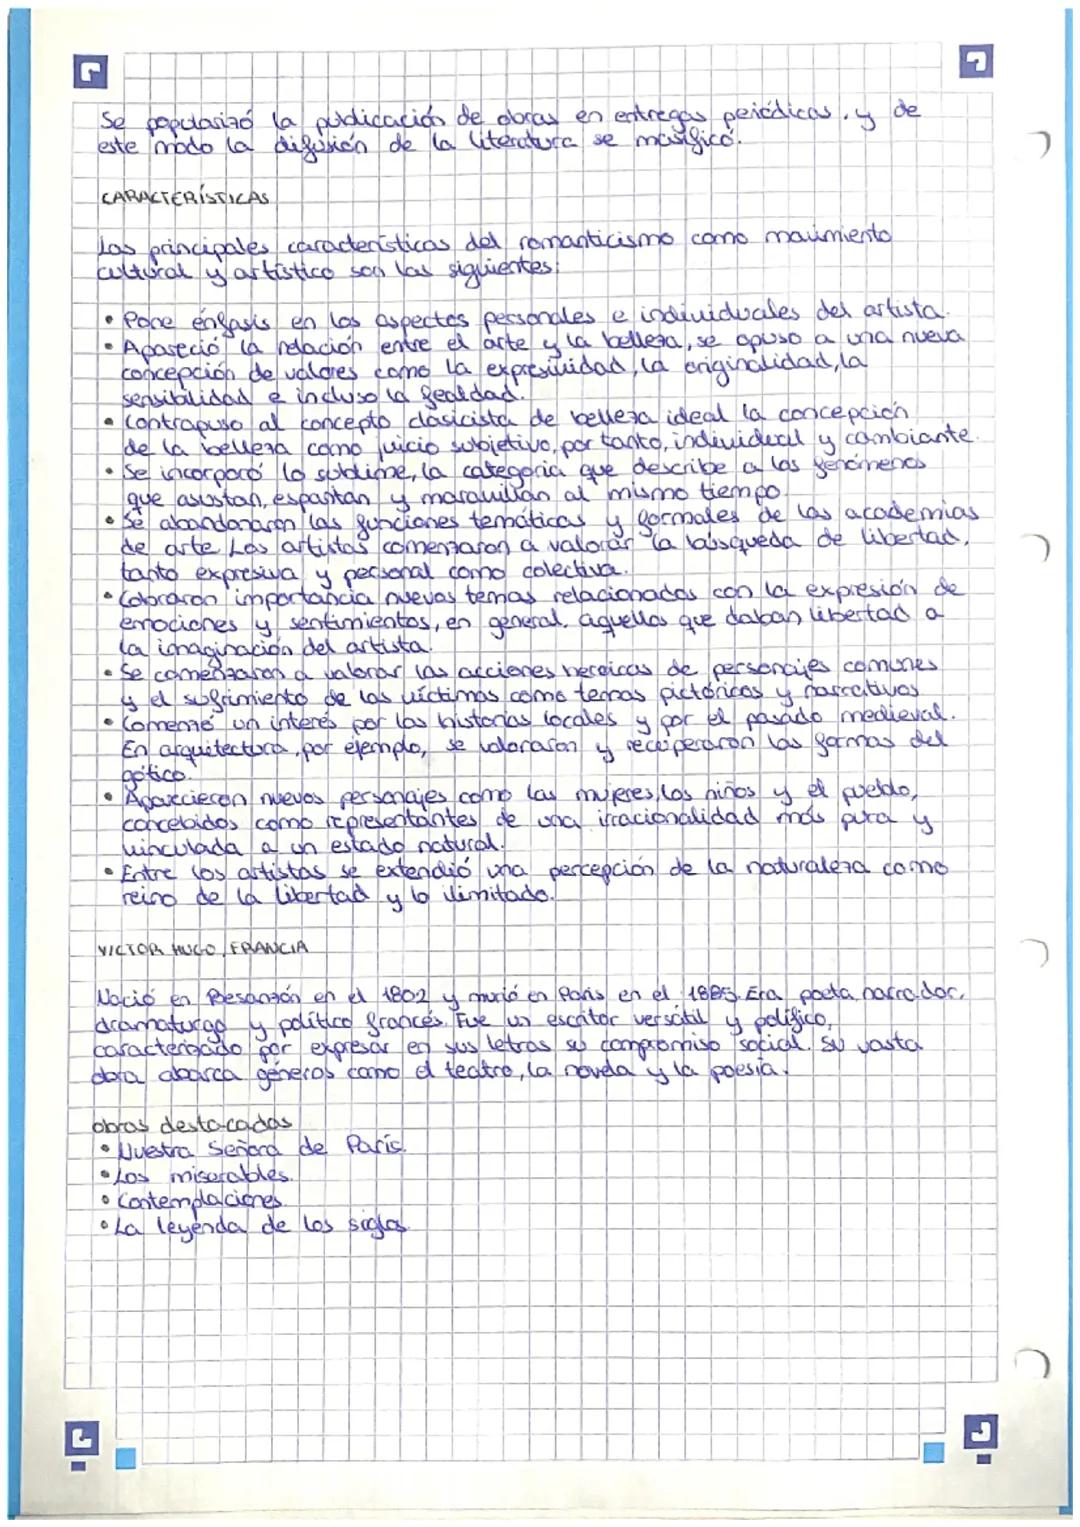 Se popularizó la publicación de obras en entregas periódicas, y de
este modo la difusión de la literatura se masificó.
CARACTERÍSTICAS
Las principales características del romanticismo como movimiento
cultural y artístico son las siguientes:
• Pone énfasis en los aspectos personales e individuales del artista.
• Apareció la relación entre el arte y la belleza, se opuso a una nueva
concepción de valores como la expresividad, la originalidad, la
sensibilidad e incluso la fealdad.
• Contrapuso al concepto clasicista de belleza ideal la concepción
de la belleza como juicio subjetivo, por tanto, individual y cambiante.
• Se incorporó lo sublime, la categoría que describe a los fenómenos
que asustan, espantan y maravillan al mismo tiempo.
• Se abandonaron las funciones temáticas y formales de las academias
de arte. Los artistas comenzaron a valorar la búsqueda de libertad,
tanto expresiva y personal como colectiva.
• Cobraron importancia nuevos temas relacionados con la expresión de
emociones y sentimientos, en general, aquellos que daban libertad a
la imaginación del artista.
• Se comenzaron a valorar las acciones heroicas de personajes comunes
y el sufrimiento de las víctimas como temas pictóricos y narrativos
• Comenzó un interés por las historias locales y por el pasado medieval.
En arquitectura, por ejemplo, se valoraron y recuperaron las formas del
gótico.
• Aparecieron nuevos personajes como las mujeres, los niños y el pueblo,
concebidos como representantes de una irracionalidad más pura y
vinculada a un estado natural.
• Entre los artistas se extendió una percepción de la naturaleza como
reino de la libertad y lo ilimitado.
VICTOR HUGO, FRANCIA
Nació en Besanzón en el 1802 y murió en París en el 1885. Era poeta, narrador,
dramaturgo y político francés. Fue un escritor versátil y prolífico,
caracterizado por expresar en sus letras su compromiso social. Su vasta
obra abarca géneros como el teatro, la novela y la poesía.
obras destacadas
• Nuestra Señora de París.
• Los miserables.
• Contemplaciones.
• La leyenda de los siglos.